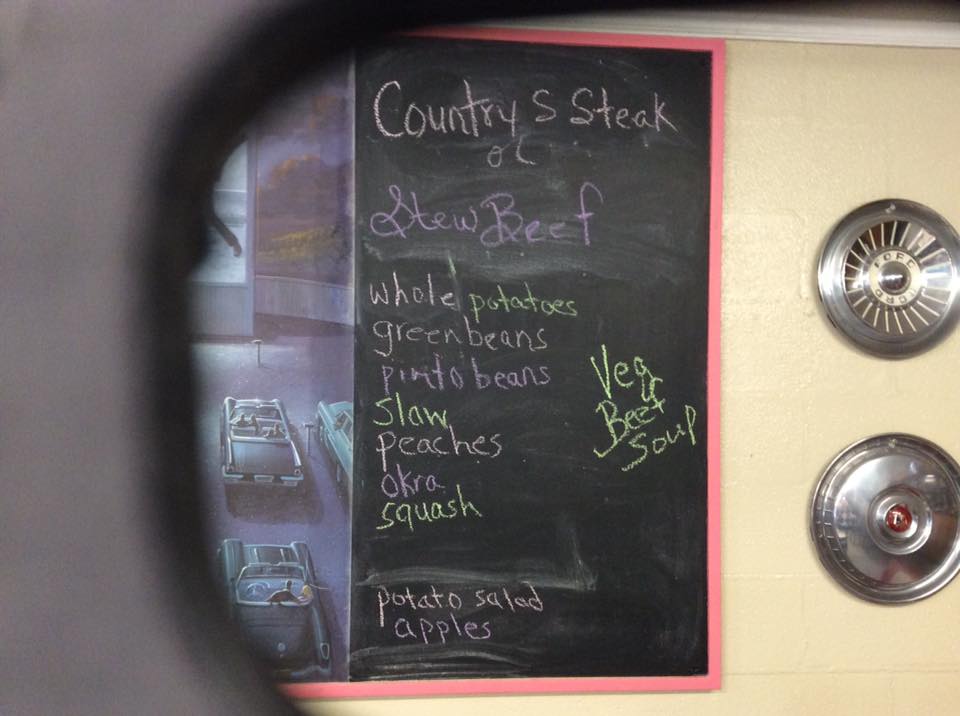 Country S Steak
or
Stew Beef
whole potatoes
green beans
pinto beans
slaw
peaches
okra
squash
Veg
Beef
Soup
potato salad
apples
FORD
FORD